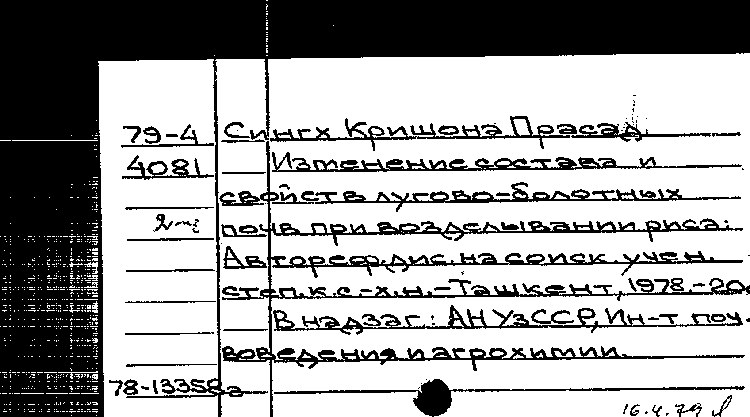 79-4 Сингх Кришона Прасад.
4081 Изменение состава и
свойств лугово-болотных
почв при возделывании риса:
Автореф. дис. на соиск. учен.
степ. к.с.-х.н.-Ташкент, 1978.-20
В надзаг.: АН УзССР, Ин-т поч-
воведения и агрохимии.
78-13358а
16.4.79